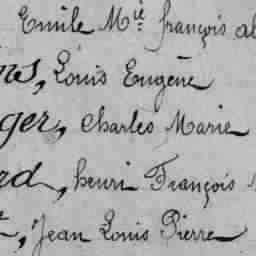 Emile Mie françois al
ns, Louis Eugène
ger, Charles Marie
rd, henri François
, Jean Louis Pierre